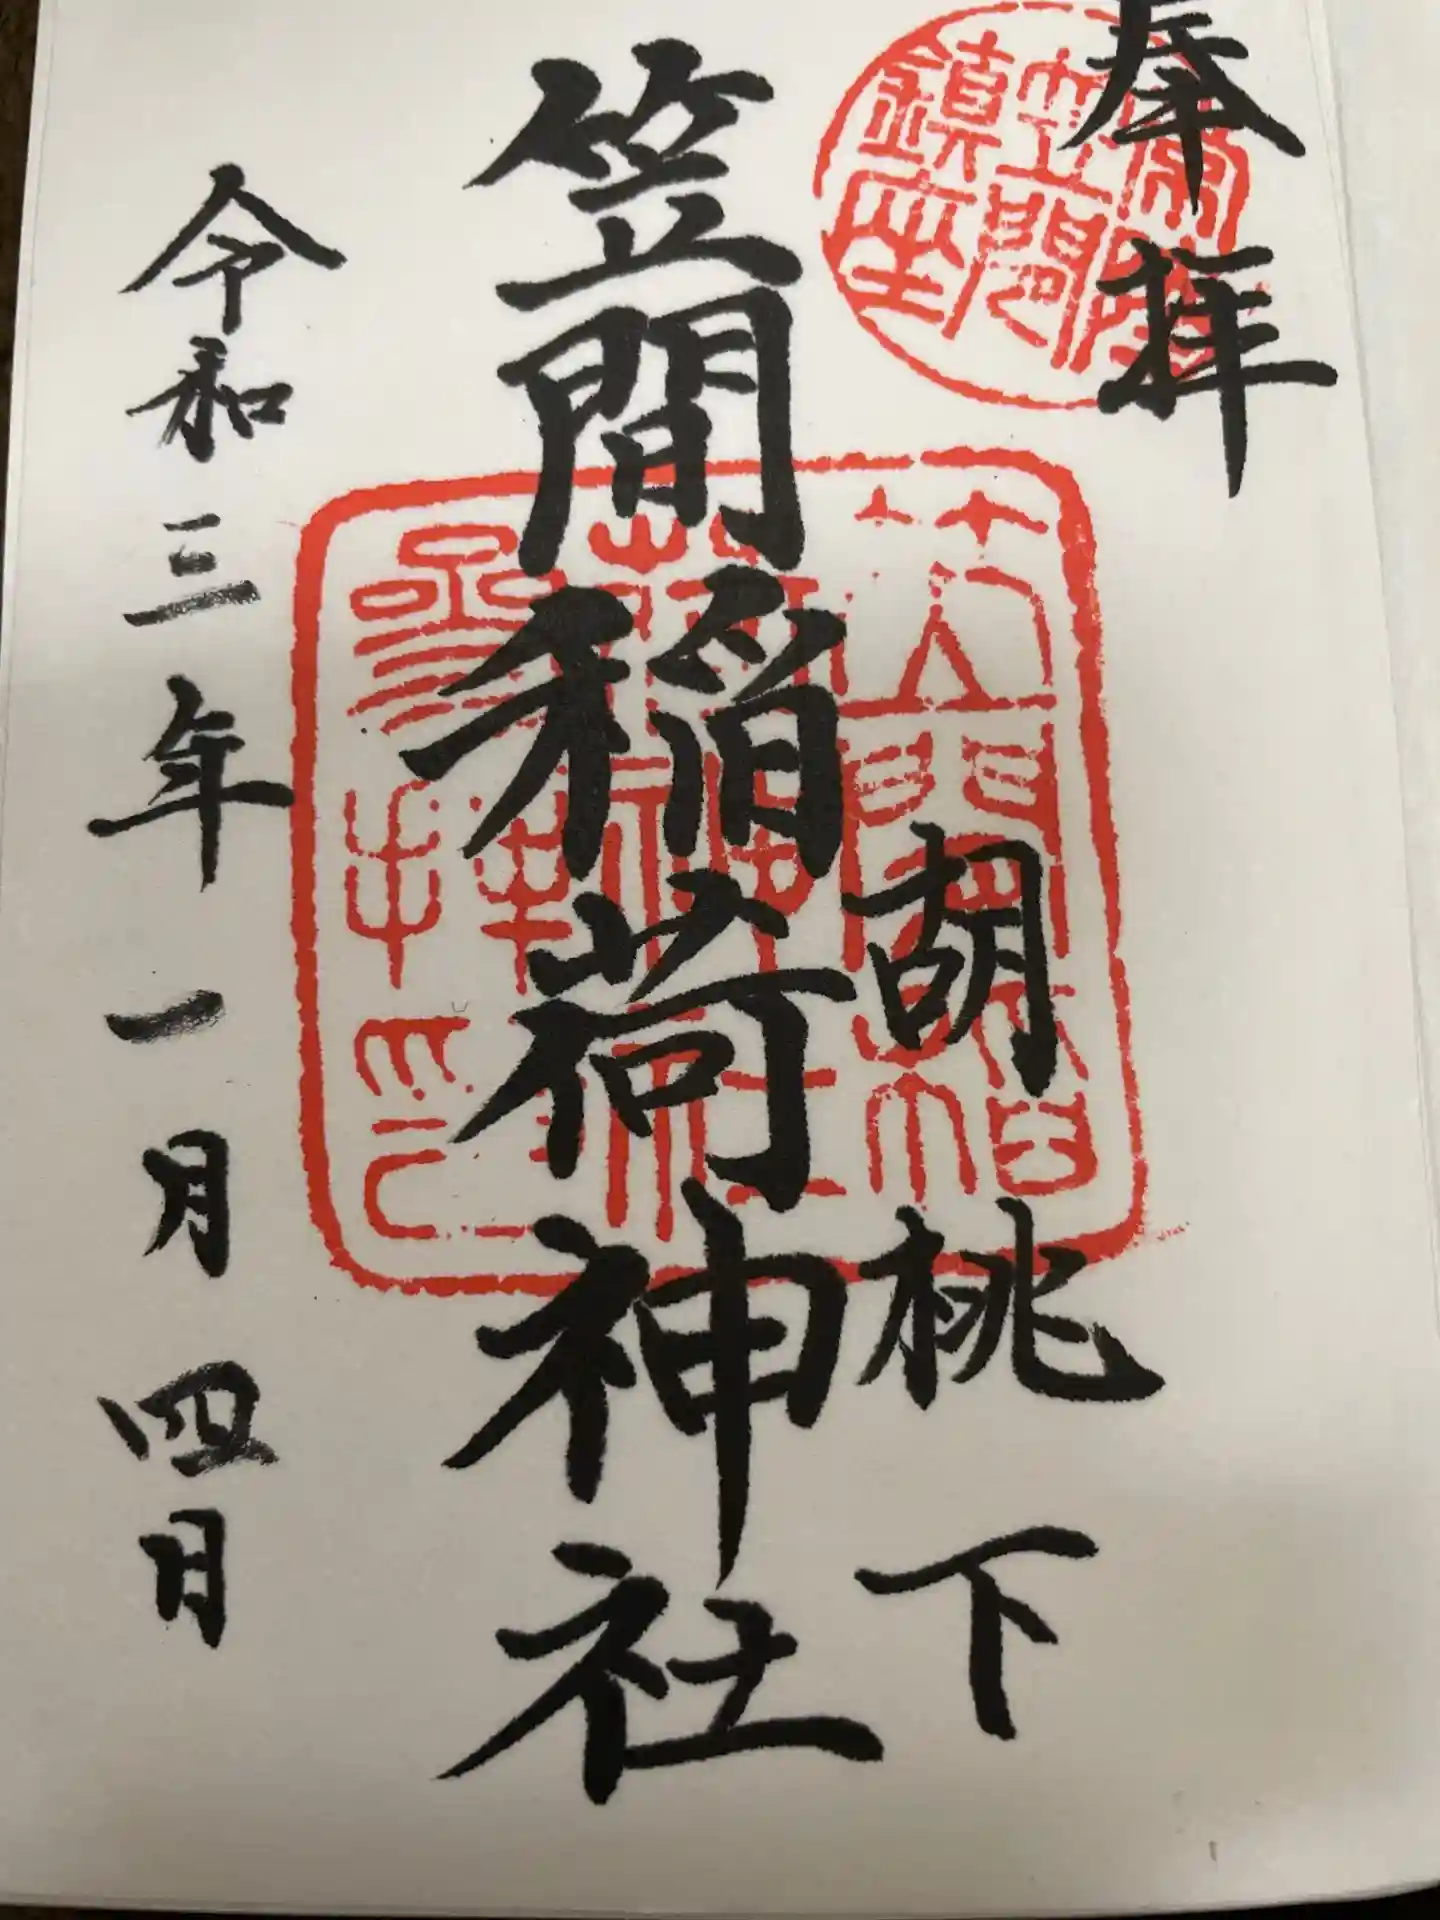 奉拝
常陸
笠間
鎮座
胡桃下
笠間稲荷神社
笠間稲
荷神社
参拝之印
令和三年一月四日